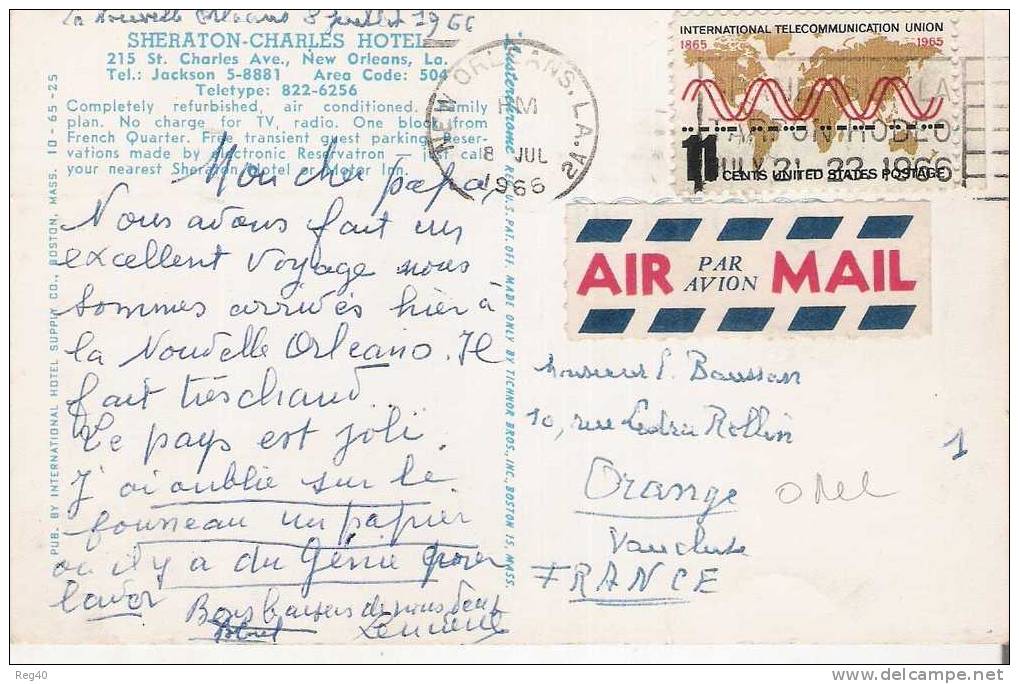 la Nouvelle Orléans 8 Juillet 1966
SHERATON-CHARLES HOTEL
215 St. Charles Ave., New Orleans, La.
Tel.: Jackson 5-8881 Area Code: 504
Teletype: 822-6256
Completely refurbished, air conditioned. Family
plan. No charge for TV, radio. One block from
French Quarter. Free transient guest parking. Reser-
vations made by electronic Reservatron — call
your nearest Sheraton Hotel or Motor Inn.
Mon cher papa,
Nous avons fait un
excellent voyage nous
sommes arrivés hier à
la Nouvelle Orléans. Il
fait très chaud.
Le pays est joli.
J'ai oublié sur le
fourneau un papier
où il y a du Génie pour
laver
Bons baisers de nous deux
PUB. BY INTERNATIONAL HOTEL SUPPLY CO., BOSTON, MASS. 10-65-25
"Lusterchrome" REG. U.S. PAT. OFF. MADE ONLY BY TICHNOR BROS., INC., BOSTON 15, MASS.
NEW ORLEANS, LA.
PM
8 JUL
1966
2A
INTERNATIONAL TELECOMMUNICATION UNION
1865 1965
11 CENTS UNITED STATES POSTAGE
JULY 21 22 1966
AIR PAR AVION MAIL
Monsieur P. Bausson
10, rue Ledru Rollin
Orange
Vaucluse
FRANCE
1
Reg40
delcampe.net